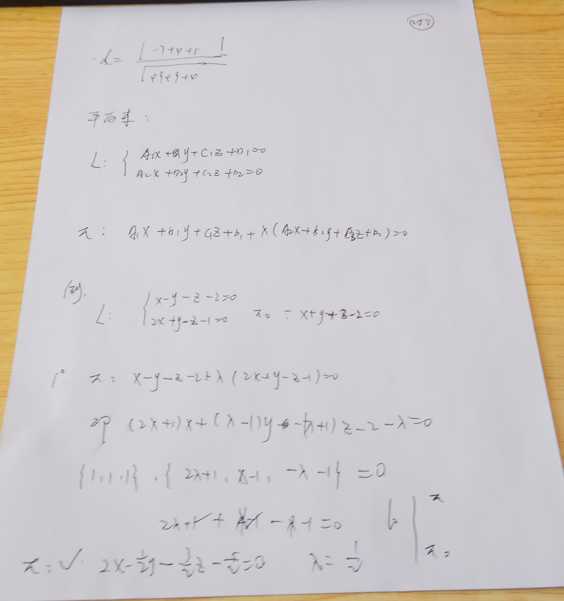 d=
平面束:
L: { A₁x+B₁y+C₁z+D₁=0
A₂x+B₂y+C₂z+D₂=0
π: A₁x+B₁y+C₁z+D₁+λ(A₂x+B₂y+C₂z+D₂)=0
例.
L: { x-y-z-2=0
2x+y-z-1=0 π₀: x+y+z-2=0
1° π: x-y-z-2+λ(2x+y-z-1)=0
即 (2λ+1)x+(λ-1)y-(λ+1)z-2-λ=0
{1,1,1}·{2λ+1, λ-1, -λ-1}=0
2λ+1+λ-1-λ-1=0
π=✓ 2x-½y-3/2z-5/2=0 λ=½
π
π₀